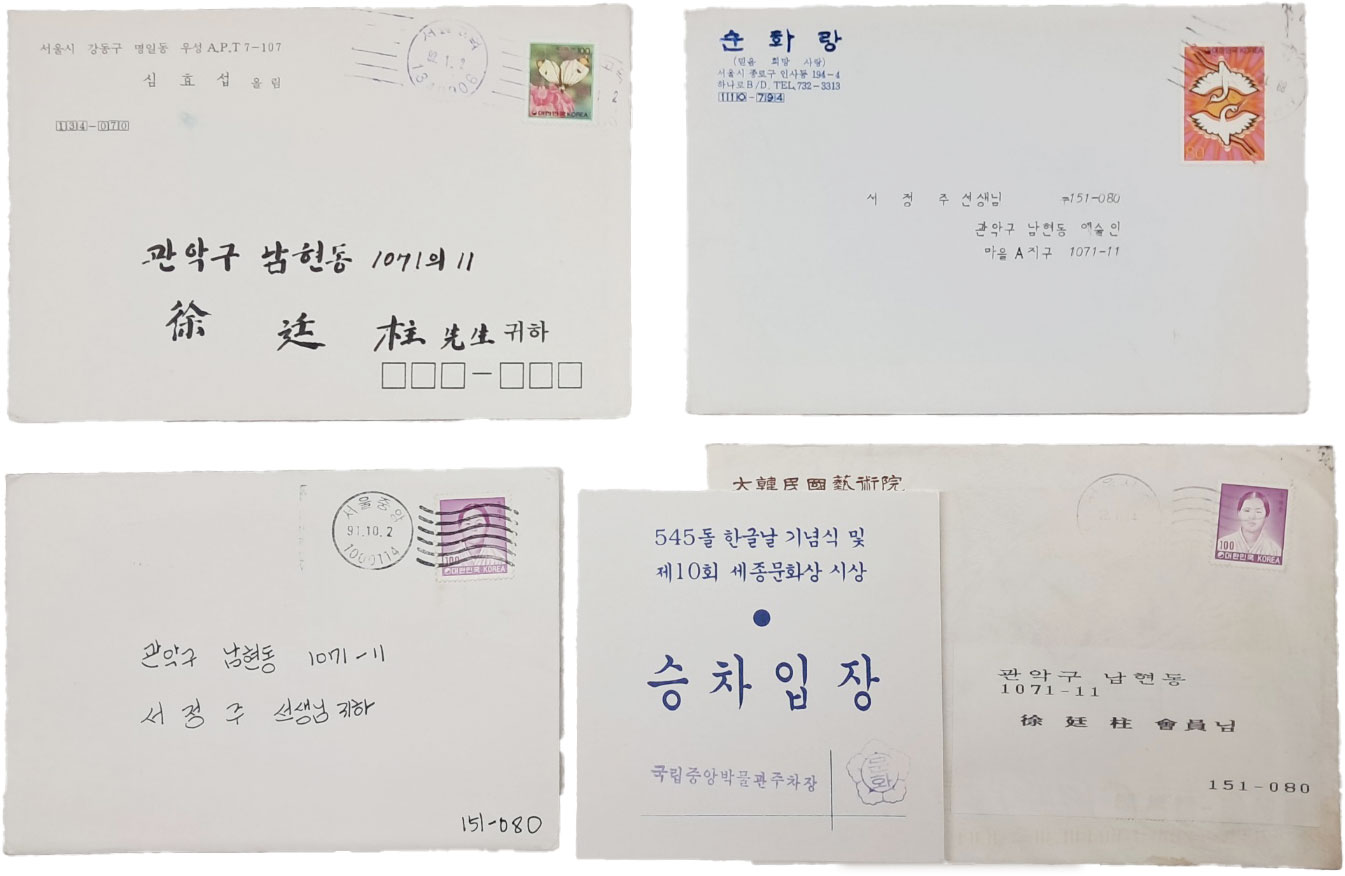 서울시 강동구 명일동 우성 A.P.T 7-107
심 효 섭 올림
134-070
92.1.2
100
대한민국 KOREA
관악구 남현동 1071의 11
徐 廷 柱 先生 귀하
순 화 랑
(믿음 희망 사랑)
서울시 종로구 인사동 194-4
하나로B/D. TEL.732-3313
110-794
대한민국 KOREA
80
서 정 주 선생님 〒151-080
관악구 남현동 예술인
마을 A지구 1071-11
서울중앙
91.10.2
1009114
100
대한민국 KOREA
관악구 남현동 1071-11
서 정 주 선생님 귀하
151-080
大韓民國藝術院
545돌 한글날 기념식 및
제10회 세종문화상 시상
●
승차입장
국립중앙박물관주차장
문화
100
대한민국 KOREA
관악구 남현동
1071-11
徐 廷 柱 會員님
151-080